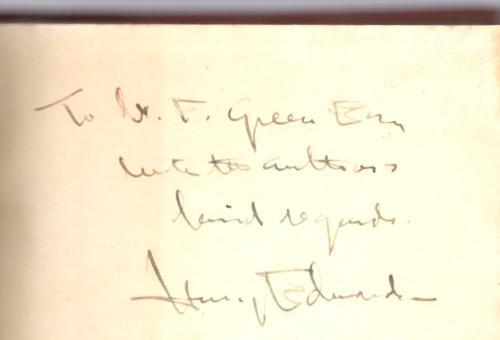 To W. F. Green Esq
with the authors
kind regards.
Henry Edwards